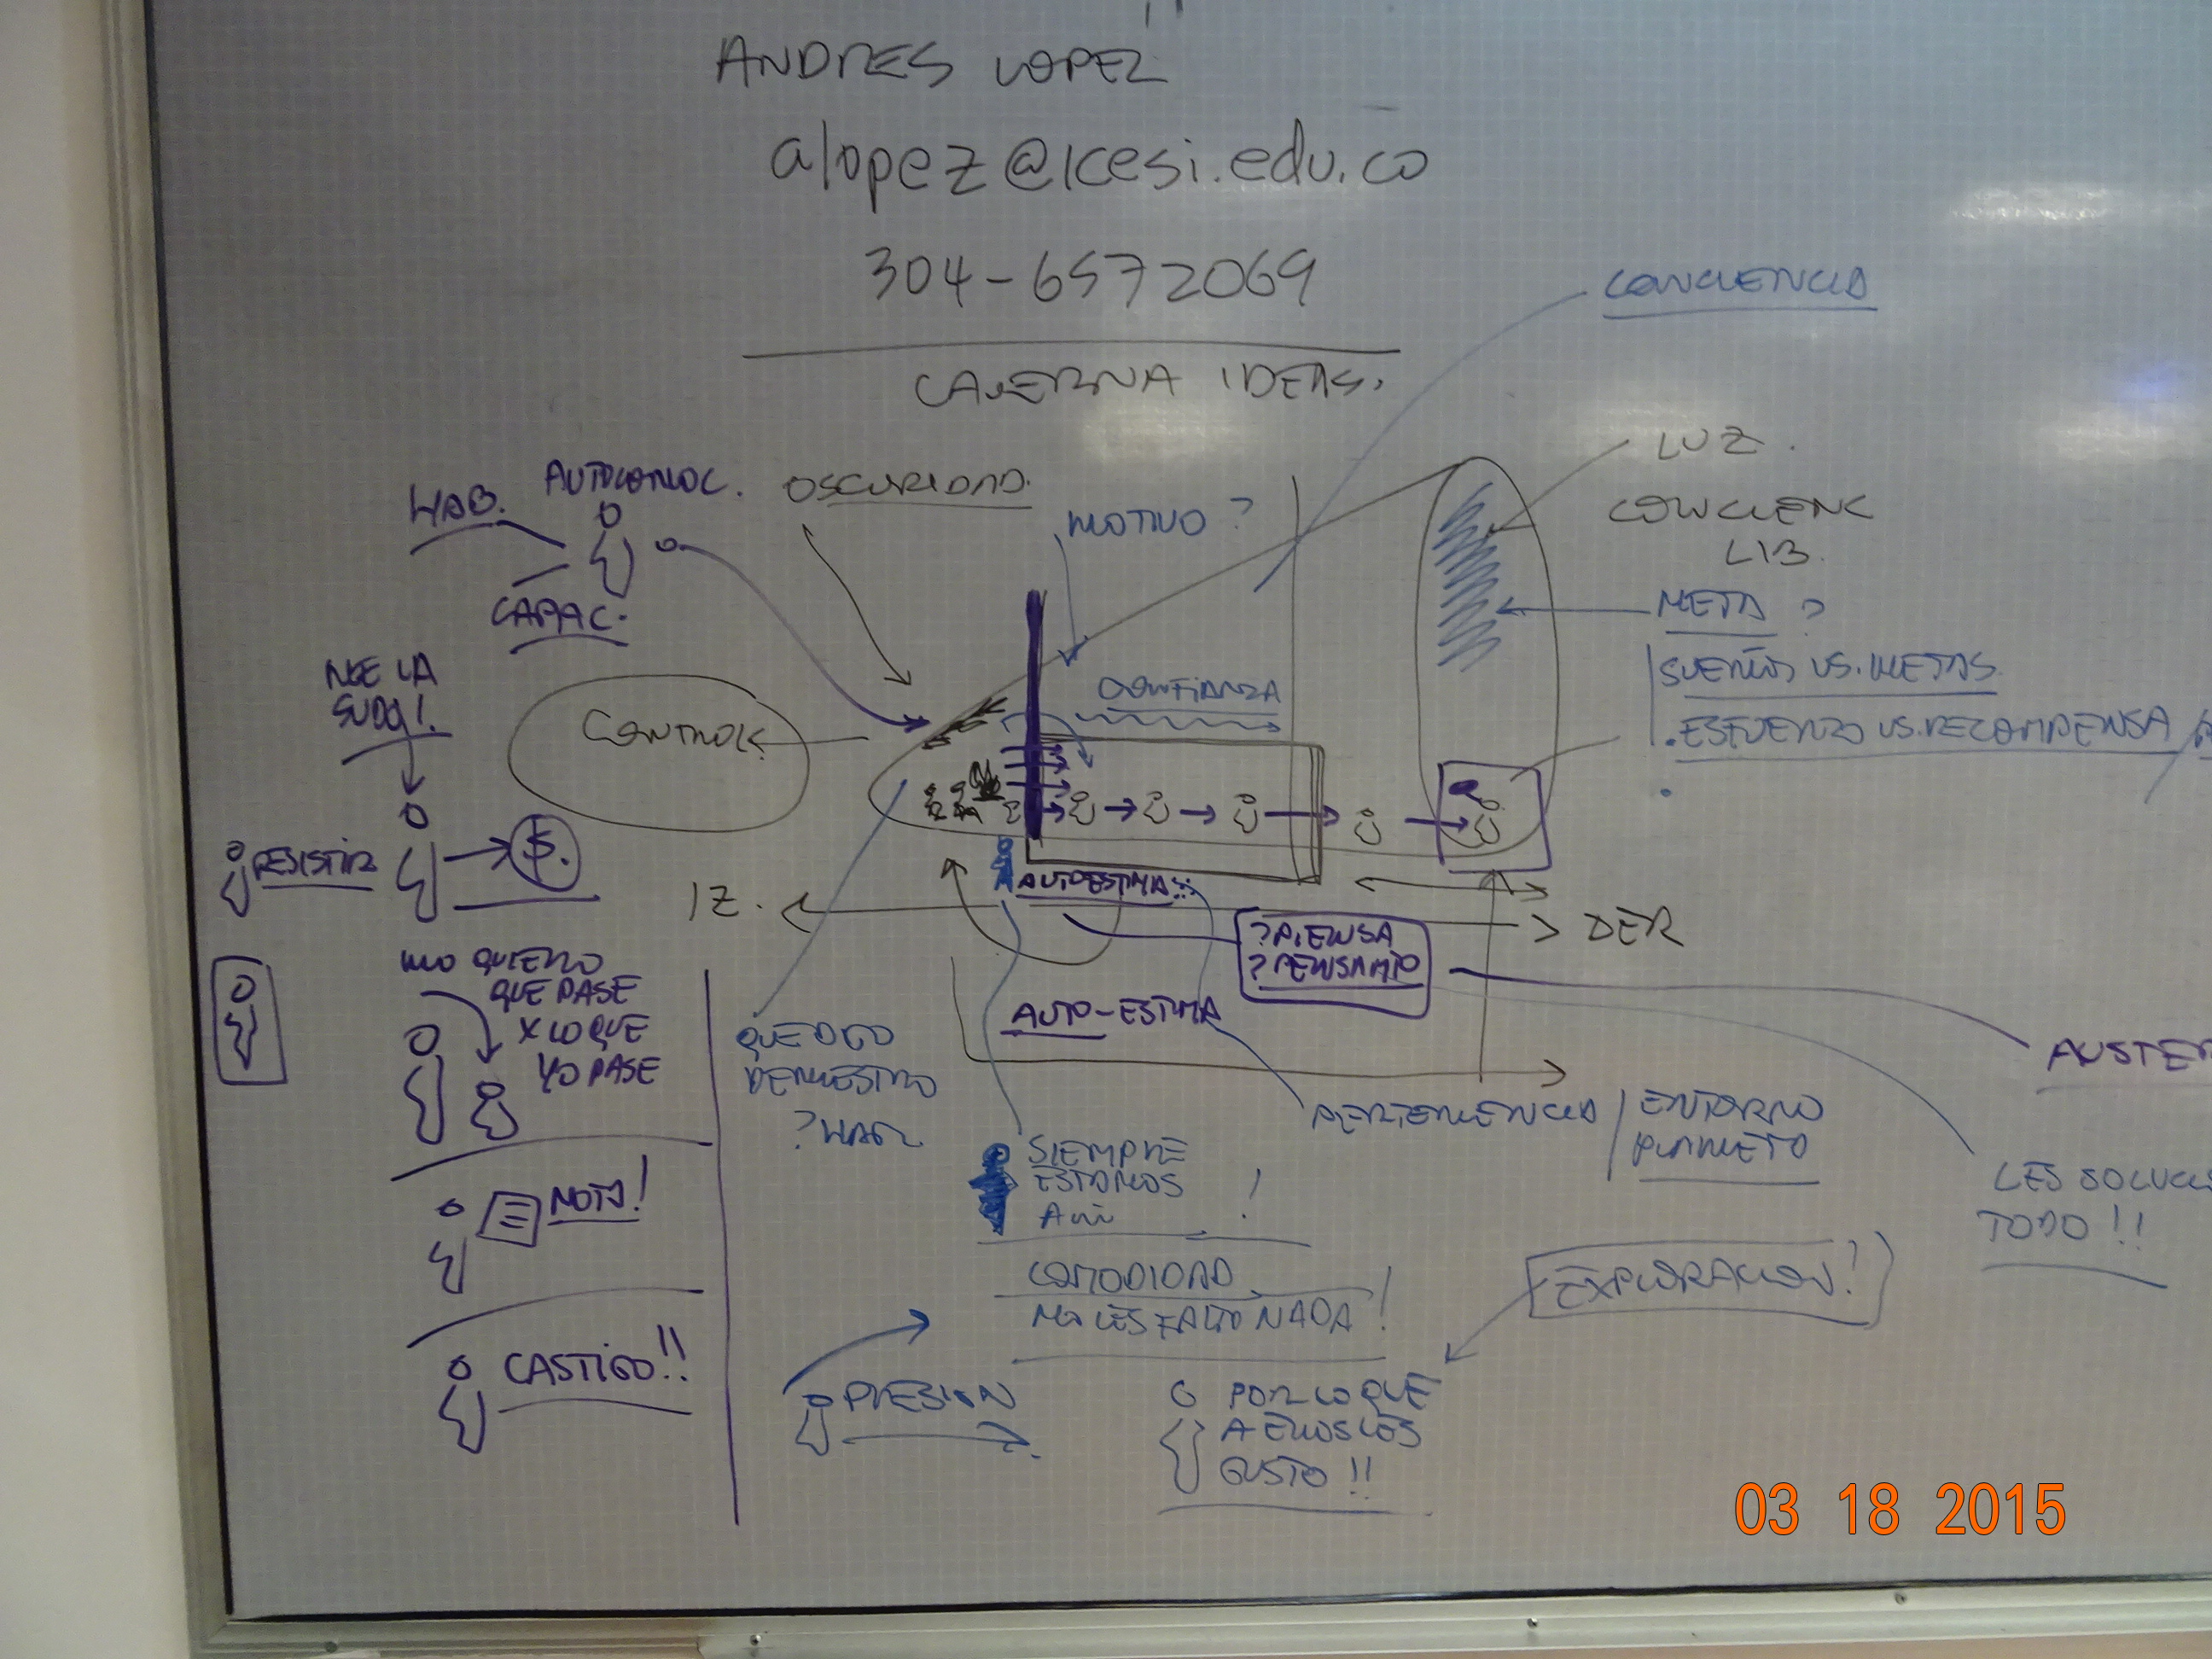 ANDRES LOPEZ
alopez@icesi.edu.co
304-6572069
CAVERNA IDEAS.
CONCIENCIA
LUZ.
CONCIENC
LIB.
META ?
SUEÑOS VS. METAS
.ESFUERZO VS. RECOMPENSA
HAB.
AUTOCONOC.
CAPAC.
OSCURIDAD.
MOTIVO ?
CONFIANZA
NSE LA
SUDA!.
CONTROL
RESISTIR
$.
IZ.
DER
AUTOESTIMA
?PIENSA
?PENSAMTO
AUTO-ESTIMA
NO QUIERO
QUE PASE
X LO QUE
YO PASE
QUE DIGO
DEMUESTRO
PERTENENCIA
ENTORNO
SIEMPRE
ESTAMOS
!
LES SOLUC
TODO!!
AUSTER
NOTA!
COMODIDAD
NO LES FALTO NADA!
EXPLORACION!
CASTIGO!!
PRESION
POR LO QUE
A ELLOS LES
GUSTO!!
03 18 2015